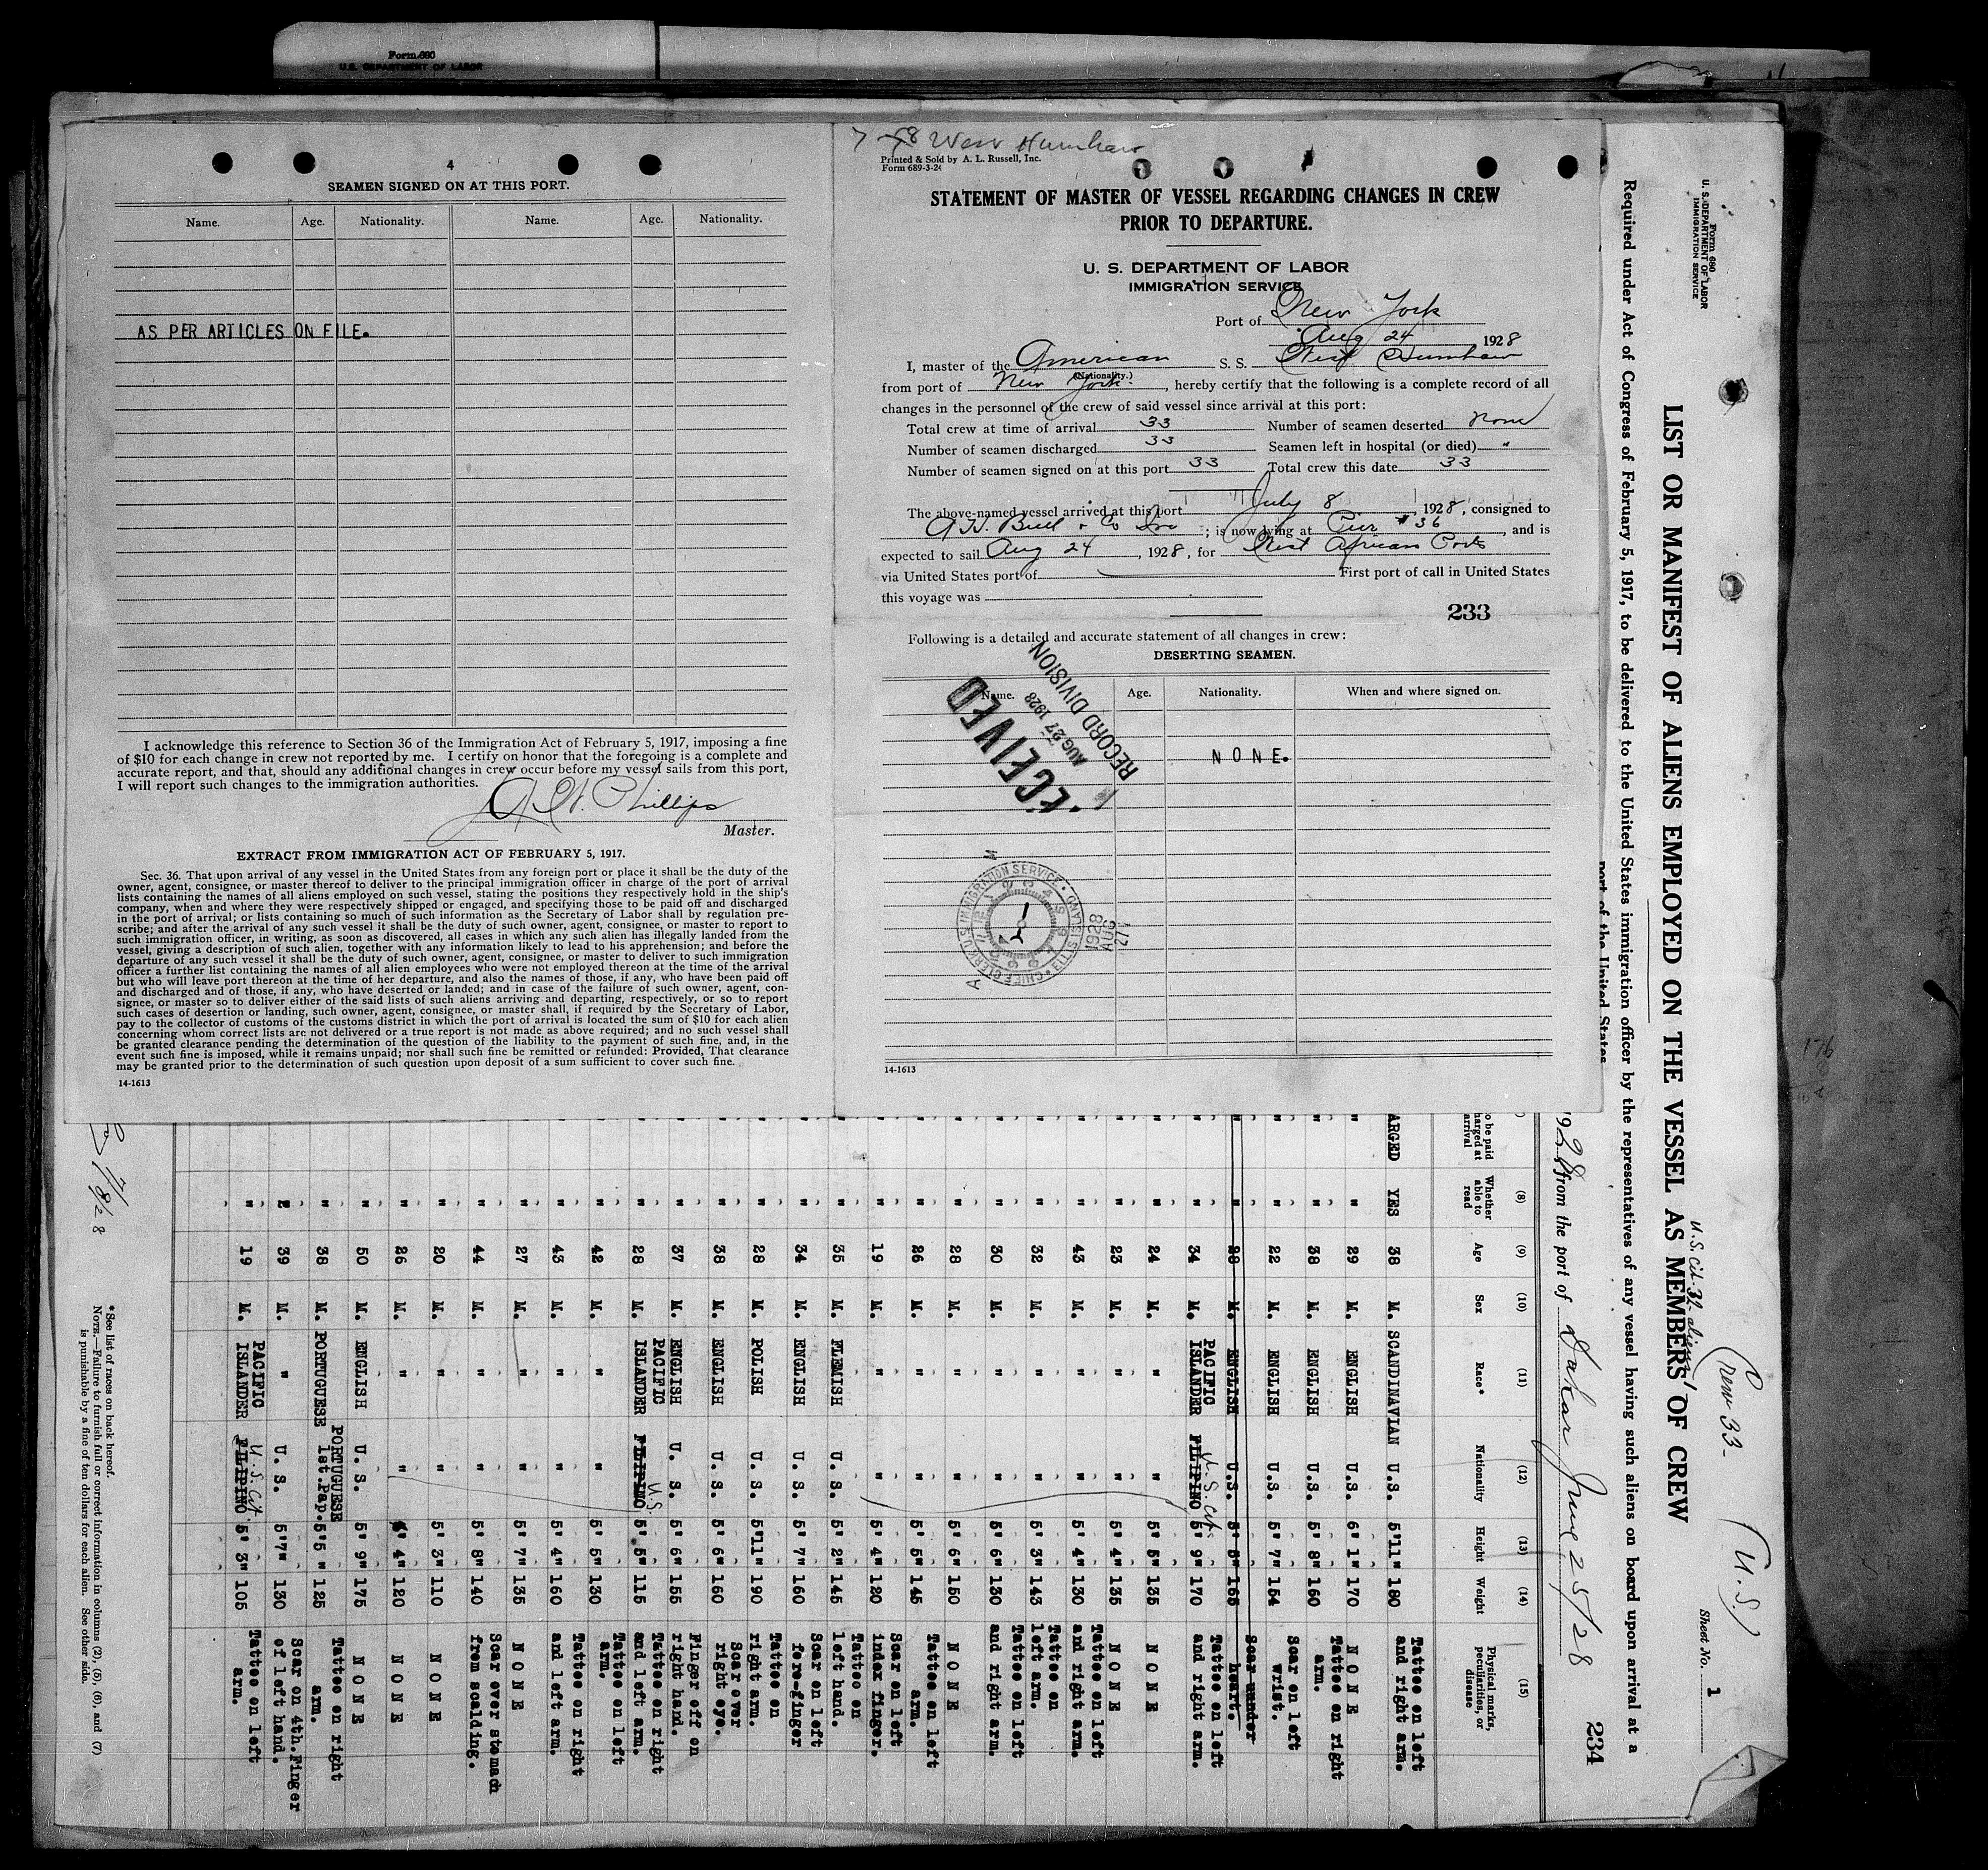 Form 680
U.S. DEPARTMENT OF LABOR
4
SEAMEN SIGNED ON AT THIS PORT.
Name. Age. Nationality. Name. Age. Nationality.
AS PER ARTICLES ON FILE.
I acknowledge this reference to Section 36 of the Immigration Act of February 5, 1917, imposing a fine
of $10 for each change in crew not reported by me. I certify on honor that the foregoing is a complete and
accurate report, and that, should any additional changes in crew occur before my vessel sails from this port,
I will report such changes to the immigration authorities.
Phillips
Master.
EXTRACT FROM IMMIGRATION ACT OF FEBRUARY 5, 1917.
Sec. 36. That upon arrival of any vessel in the United States from any foreign port or place it shall be the duty of the
owner, agent, consignee, or master thereof to deliver to the principal immigration officer in charge of the port of arrival
lists containing the names of all aliens employed on such vessel, stating the positions they respectively hold in the ship's
company, when and where they were respectively shipped or engaged, and specifying those to be paid off and discharged
in the port of arrival; or lists containing so much of such information as the Secretary of Labor shall by regulation pre-
scribe; and after the arrival of any such vessel it shall be the duty of such owner, agent, consignee, or master to report to
such immigration officer, in writing, as soon as discovered, all cases in which any such alien has illegally landed from the
vessel, giving a description of such alien, together with any information likely to lead to his apprehension; and before the
departure of any such vessel it shall be the duty of such owner, agent, consignee, or master to deliver to such immigration
officer a further list containing the names of all alien employees who were not employed thereon at the time of the arrival
but who will leave port thereon at the time of her departure, and also the names of those, if any, who have been paid off
and discharged and of those, if any, who have deserted or landed; and in case of the failure of such owner, agent, con-
signee, or master so to deliver either of the said lists of such aliens arriving and departing, respectively, or so to report
such cases of desertion or landing, such owner, agent, consignee, or master shall, if required by the Secretary of Labor,
pay to the collector of customs of the customs district in which the port of arrival is located the sum of $10 for each alien
concerning whom correct lists are not delivered or a true report is not made as above required; and no such vessel shall
be granted clearance pending the determination of the question of the liability to the payment of such fine, and, in the
event such fine is imposed, while it remains unpaid; nor shall such fine be remitted or refunded: Provided, That clearance
may be granted prior to the determination of such question upon deposit of a sum sufficient to cover such fine.
14-1613
West Humhaw
Printed & Sold by A. L. Russell, Inc.
Form 689-3-2
STATEMENT OF MASTER OF VESSEL REGARDING CHANGES IN CREW
PRIOR TO DEPARTURE.
U. S. DEPARTMENT OF LABOR
IMMIGRATION SERVICE
Port of New York
Aug 24 1928
I, master of the American S. S. West Humhaw
(Nationality.)
from port of New York, hereby certify that the following is a complete record of all
changes in the personnel of the crew of said vessel since arrival at this port:
Total crew at time of arrival 33 Number of seamen deserted None
Number of seamen discharged 33 Seamen left in hospital (or died) "
Number of seamen signed on at this port 33 Total crew this date 33
The above-named vessel arrived at this port July 8, 1928, consigned to
A H. Bull & Co Inc; is now lying at Pier #36, and is
expected to sail Aug 24, 1928, for West African Ports
via United States port of First port of call in United States
this voyage was
233
Following is a detailed and accurate statement of all changes in crew:
DESERTING SEAMEN.
Name. Age. Nationality. When and where signed on.
NONE.
RECEIVED
AUG 27 1928
RECORD DIVISION
CHIEF CLERK U.S. IMMIGRATION SERVICE ELLIS ISLAND
1928
AUG
27
14-1613
Form 680
U. S. DEPARTMENT OF LABOR
IMMIGRATION SERVICE
Sheet No. 1
(Crew 33
(U.S.)
U.S. Cit. 32 aliens 1
LIST OR MANIFEST OF ALIENS EMPLOYED ON THE VESSEL AS MEMBERS OF CREW
234
Required under Act of Congress of February 5, 1917, to be delivered to the United States immigration officer by the representatives of any vessel having such aliens on board upon arrival at a
port of the United States
1928, from the port of Dakar June 25/28
(8) (9) (10) (11) (12) (13) (14) (15)
to be paid
charged at
arrival
Whether able to read Age Sex Race* Nationality Height Weight Physical marks, peculiarities, or disease
ARGED YES 38 M. SCANDINAVIAN U.S. 5'11" 180 Tattoo on left and right arm.
" " 29 M. ENGLISH U.S. 6'1" 170 NONE
" " 38 M. ENGLISH U.S. 5'8" 160 Tattoo on right arm.
" " 22 M. ENGLISH U.S. 5'7" 154 Scar on left wrist.
" " 28 M. ENGLISH U.S. 5'5" 165 Scar under heart.
" " 34 M. PACIFIC ISLANDER FILIPINO U.S. Cit. 5'9" 170 Tattoo on left and right arm.
" " 24 M. " " 5'5" 135 NONE
" " 23 M. " " 5'4" 135 NONE
" " 43 M. " " 5'4" 130 Tattoo on left and right arm.
" " 32 M. " " 5'3" 143 Tattoo on left arm.
" " 30 M. " " 5'6" 130 Tattoo on left and right arm.
" " 28 M. " " 5'6" 150 NONE
" " 26 M. " " 5'5" 145 Tattoo on left arm.
" " 19 M. " " 5'4" 120 Scar on left index finger.
" " 35 M. FLEMISH U. S. 5'2" 145 Tattoo on left hand.
" " 34 M. ENGLISH U. S. 5'7" 160 Scar on left fore-finger
" " 28 M. POLISH U. S. 5'11" 190 Tattoo on right arm.
" " 38 M. ENGLISH U. S. 5'6" 160 Scar over right eye.
" " 37 M. ENGLISH U. S. 5'6" 155 Finger off on right hand.
" " 28 M. PACIFIC ISLANDER FILIPINO U.S. 5'5" 115 Tattoo on right and left arm.
" " 42 M. " " 5'5" 130 Tattoo on left arm.
" " 43 M. " " 5'4" 160 Tattoo on right and left arm.
" " 27 M. " " 5'7" 135 NONE
" " 44 M. " " 5'8" 140 Scar over stomach from scalding.
" " 20 M. " " 5'3" 110 NONE
" " 26 M. " " 5'4" 120 NONE
" " 50 M. ENGLISH U. S. 5'9" 175 NONE
" " 38 M. PORTUGUESE PORTUGUESE 1st.Pap. 5'5" 125 Tattoo on right arm.
" " 39 M. " U. S. 5'7" 130 Scar on 4th.Finger of left hand.
" " 19 M. PACIFIC ISLANDER FILIPINO U.S Cit. 5'3" 105 Tattoo on left arm.
*See list of races on back hereof.
NOTE.—Failure to furnish full or correct information in columns (2), (5), (6), and (7)
is punishable by a fine of ten dollars for each alien. See other side.
7/8/28
176